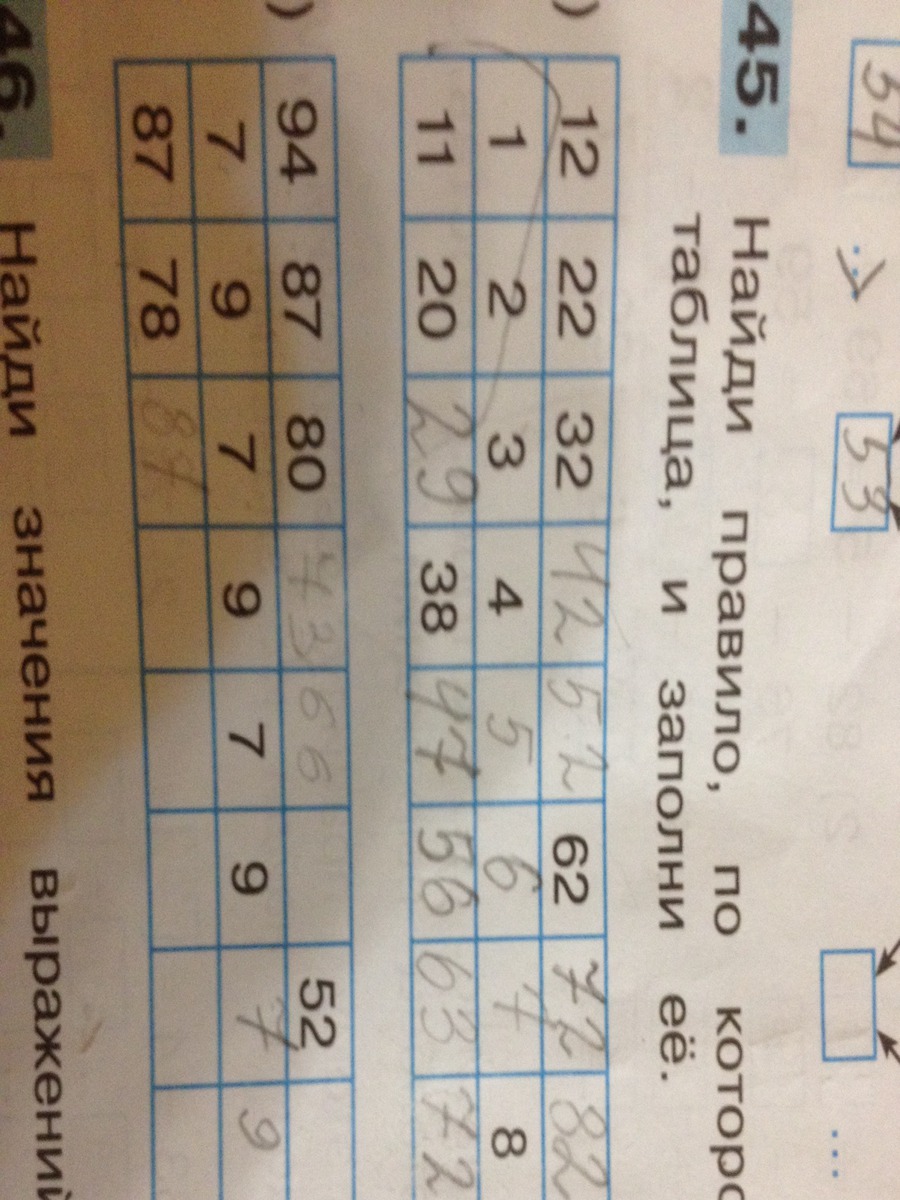 54 > 53 ...
45. Найди правило, по которо
таблица, и заполни её.
) 12 22 32 42 52 62 72 82
1 2 3 4 5 6 7 8
11 20 29 38 47 56 63 72
) 94 87 80 73 66 52
7 9 7 9 7 9 7 9
87 78
46. Найди значения выражений